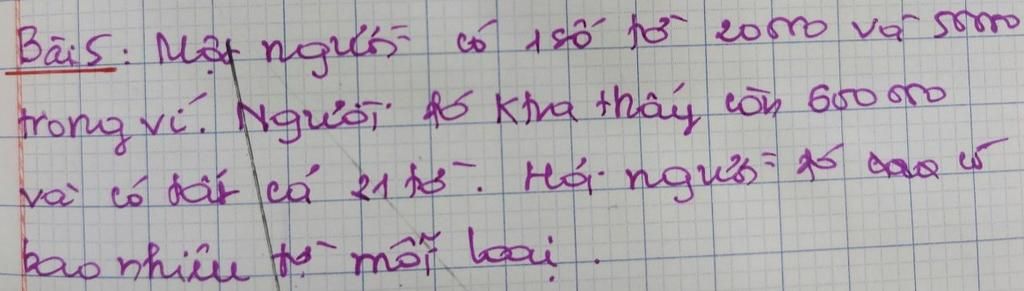 Bài 5: Một người có 1 số tờ 20000 và 50000
trong ví. Người đó ktra thấy còn 600000
và có tất cả 21 tờ. Hỏi người đó có
bao nhiêu tờ mỗi loại.